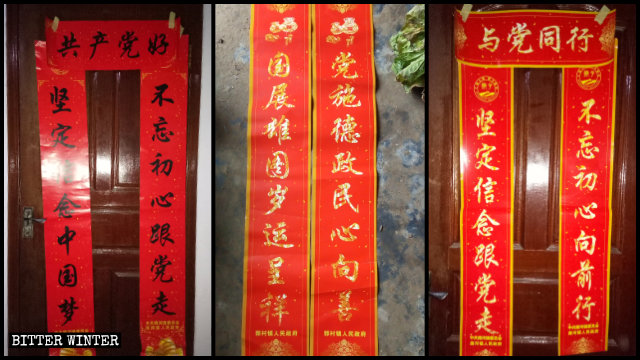 共产党好
不忘初心跟党走
坚定信念中国梦
党施德政民心向善
国展雄图岁运呈祥
郭村镇人民政府
郭村镇人民政府
与党同行
不忘初心向前行
坚定信念跟党走
BITTER WINTER